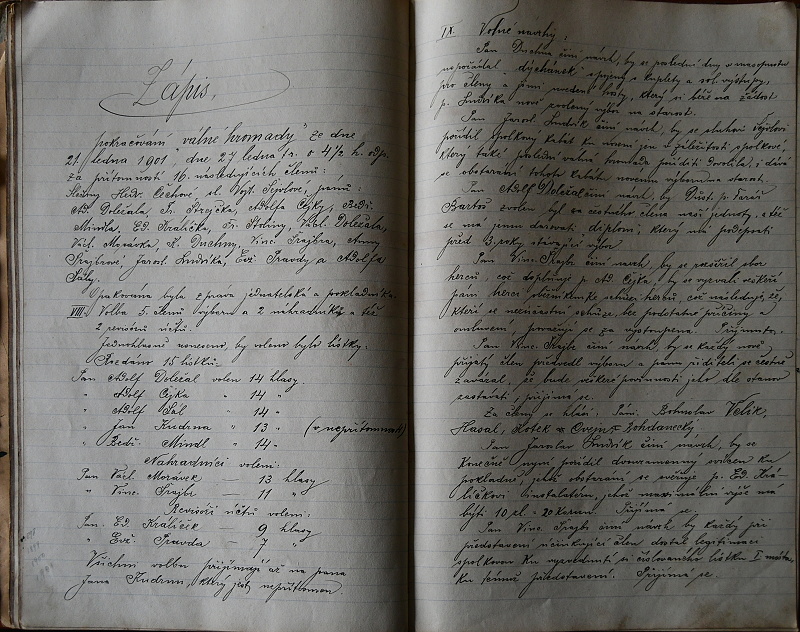 Zápis.
pokračování "valné hromady" ze dne
21. ledna 1901, dne 27 ledna t.r. o 4 1/2 h. odp.
za přítomnosti 16. následujících členů:
Slečny Hedv. Čechové, sl. Vojt. Sejdlové, pánů:
Ad. Doležala, Fr. Strejčka, Adolfa Cejky, Bedř.
Mindla, Ed. Králíčka, Fr. Stoliny, Václ. Doležala,
Václ. Moravka, K. Duchmy, Vinc. Trejbra, Anny
Trejbrové, Jarosl. Ludvíka, Evž. Pravdy a Adolfa
Sály.
Opakována byla zpráva jednatelská a pokladničná.
VIII. Volba 5. členů výboru a 2 náhradníků a též
2 revisorů účtů.
Jednohlasně usneseno, by voleno bylo lístky.
Rozdáno 15 lístků.
Pan Adolf Doležal volen 14 hlasy
" Adolf Cejka " 14 "
" Adolf Sál " 14 "
" Jan Kudrna " 13 " (v nepřítomnosti)
" Bedř. Mindl " 14 "
Náhradníci voleni:
Pan Václ. Moravek — 13 hlasy
" Vinc. Trejbr — 11 "
Revisoři účtů voleni:
Pan Ed. Králíček 9 hlasy
" Evž. Pravda — 7 "
Všichni volbu přijímají až na pana
Jana Kudrnu, který jest nepřítomen.
IX. Volné návrhy:
Pan Duchma činí návrh, by se poslední dny v masopustu
uspořádal dýchánek spojený s kuplety a sol. výstupy,
pro členy a jimi uvedené hosty, který si béře na žádost
p. Ludvíka nově zvolený výbor na starost.
Pan Jarosl. Ludvík činí návrh, by se sluhovi Sejdlovi
pořídil spolkový kabát ku nošení jen v záležitosti spolkové,
který také přítomná valná hromada poříditi dovolila, i dává
se obstarání tohoto kabátu novému výboru na starost.
Pan Adolf Doležal činí návrh, by Důst. p. Farář
Bartoš zvolen byl za čestného člena naší jednoty, a též
se má jemu darovati diplom, který má podepsati
před 3 roky stávající výbor
Pan Vinc. Trejbr činí návrh, by se rozšířil sbor
herců, což doplňuje p. Ad. Cejka, by se vyzvali veškeří
páni herci ochotníci ke schůzi herců, což následuje, že,
kteří se nezúčastní schůze, bez podstatné příčiny a
omluvení, považují se za vystouplena. Přijmuto.
Pan Vinc. Trejbr činí návrh, by se každý nově
přijatý člen předvedl výboru a panu řediteli se čestně
zavázal, že bude veškeré povinnosti jeho dle stanov
zastávati, přijímá se.
Za členy se hlásí: Páni: Bohuslav Velík,
Hasal, Kotek a Bohdanecký
Pan Jaroslav Ludvík činí návrh, by se
konečně nyní pořídil dvouramenný svícen ku
pokladně, jehož obstarání se svěřuje p. Ed. Krá-
líčkovi instalatéru, jehož maximální výše má
býti 10 zl. = 20 korun. Přijímá se.
Pan Vinc. Trejbr činí návrh by každý při
představení účinkující člen dostal legitimaci
spolkovou ku vyzvednutí si číslovaného lístku I. místa
ku témuž představení. Přijímá se.